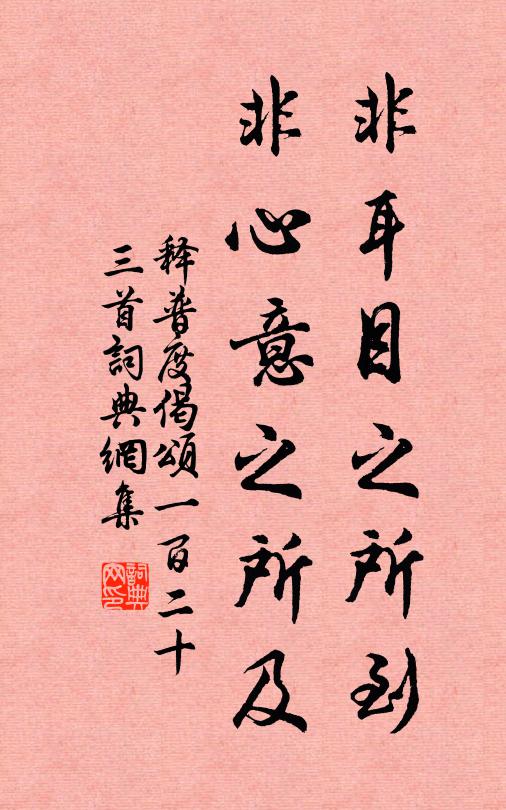 非耳目之所到
非心意之所及
释普度偈頌一百二十
三首詞典網集
詞典
网印